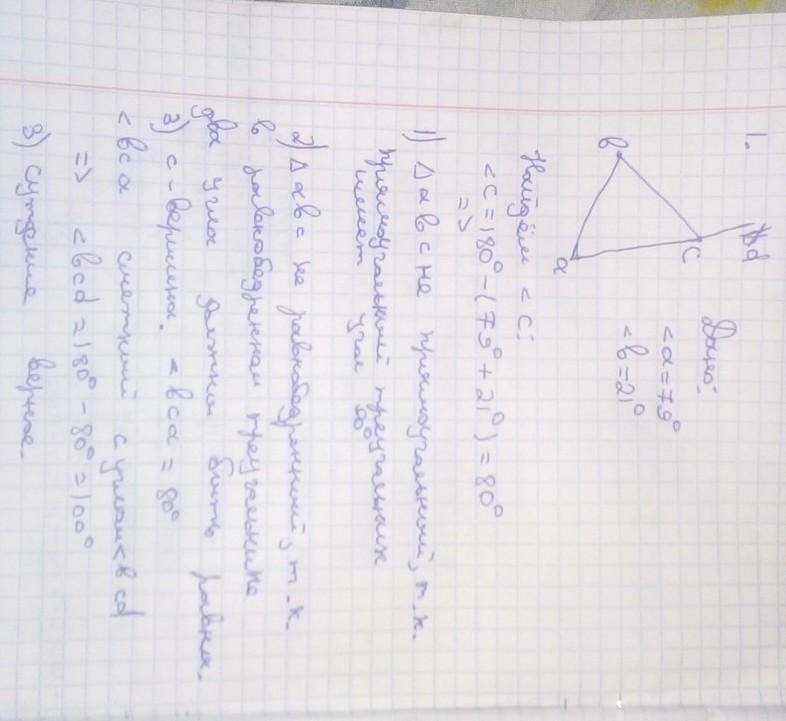 1.
b
c
d
a
Дано:
<a=79°
<b=21°
Найдём <c:
<c=180°-(79°+21°)=80°
=>
1) Δabc не прямоугольный, т.к.
прямоугольный треугольник
имеет угол 90°
2) Δabc не равнобедренный, т.к.
в равнобедренном треугольнике
два угла должны быть равны.
3) c-вершина. <bca=80°
<bca смежный с углом <bcd
=> <bcd=180°-80°=100°
3) суждение верное.